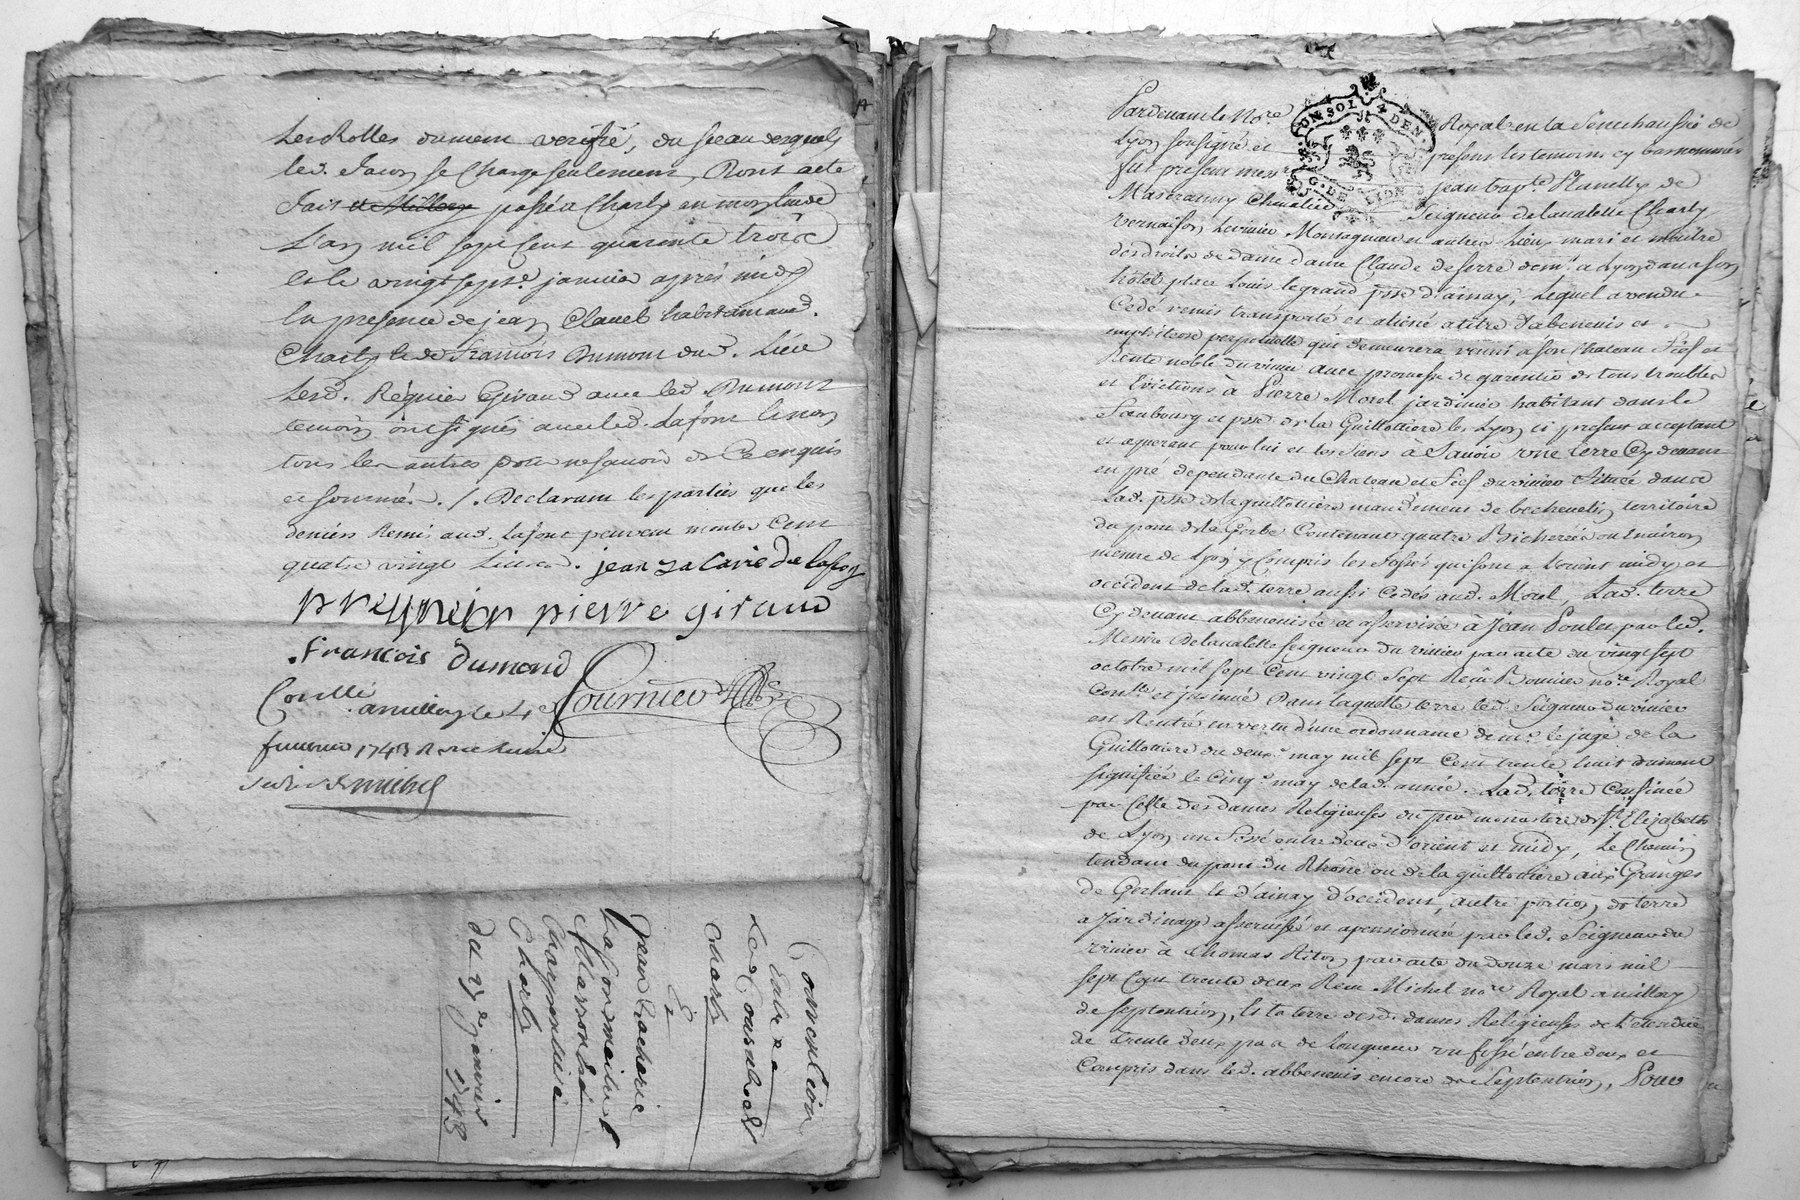 Les Rolles dument verifié, du sceau desquels
led. Jacou se charge seulement, Dont acte
fait et passé a Charly en mon etude
L'an mil sept cent quarente trois
et le vingt sept.e janvier après midy
En presence de jean Clauel habitant aud.
Charly & de François Dumont dud. Lieu
Lesd. Réquier Giraud avec led. Dumont
temoin ont signés avec led. Lafont & non
tous les autres pour ne sçavoir de ce enquis
et sommé. /. Declarant les parties que les
deniers Remis aud. Lafont peuvent monter Cent
quatre vingt Livres. jean zacarie de lafon
pierre giraud
François dumond
Conllé
a millery le 4e Fournier
fevrier 1743 Reçu
michel
Par devant le No.re Royal en la Senechaussée de
UN SOL 4 DEN.
G. DE LION
Lyon soussigné et presens les temoins cy bas nommés
fut present messire jean bap.te Planelly de
Mascranny Chevalier Seigneur de Lavalette Charly
Vernaison Levivier Montagneu et autres Lieux mari et maitre
des droits de dame anne Claude de ferre dem.t a Lyon dans son
hôtel place Louis le grand psse d'ainay, Lequel a vendu
Cedé remis transporté et aliené a titre d'abenevis et
emphiteose perpetuelle qui demeurera reuni a son Chateau fief et
Rente noble du vivier avec promesse de garentie de tous troubles
et Evictions à Pierre Morel jardinier habitant dans le
faubourg et psse de la Guillottiere les Lyon ici present acceptant
et aquerant pour lui et les siens à Savoir une terre Cy devant
en pré dependante du Chateau et fief du vivier Située dans
Lad. psse de la guillottiere mandement de bechevelin territoire
du pont de la Gerle Contenant quatre Bicherées ou Environ
mesure de Lyon y Compris les fossés qui sont a Lorient midy et
occident de lad. terre aussi Cedés aud. Morel, Lad. terre
Cy devant abbenevisée et asservisée à Jean Poulet par led.
Messire De lavalette seigneur du vivier par acte du vingt sept
octobre mil sept Cent vingt Sept Reçu Bonnier no.re Royal
Conllé et jnsinué Dans laquelle terre led. Seigneur du vivier
est Rentré en vertu d'une ordonnance de m.r le juge de la
Guillottiere du deux.e may mil sept Cent trente huit dument
signifiée le Cinq.e may de lad. année. Lad. terre Confinée
par Celle des dames Religieuses du p.er monastere de s.te Elizabeth
de Lyon un fossé entre deux d'orient et midy, Le Chemin
tendant du pont du Rhône ou de la guillottiere aux Granges
de Gerlant et d'ainay d'occident, autre portion de terre
a jardinage asservisée et apensionnée par led. Seigneur du
vivier à Thomas Riton par acte du douze mars mil
sept Cent trente deux Reçu Michel no.re Royal a millery
de septentrion, Et la terre desd. dames Religieuses de l'etendue
de trente deux pas de longueur un fossé entre deux et
Compris dans led. abbenevis encore de septentrion, Pour
Convention
Entre
Les Consuls de
Charly
&
jean Zacharie
Lafont maitre
Masson &
Charpentier a
Charly
du 27e janvier
1743